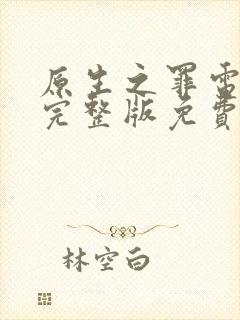 原生之罪雷
完整版免費
林空白